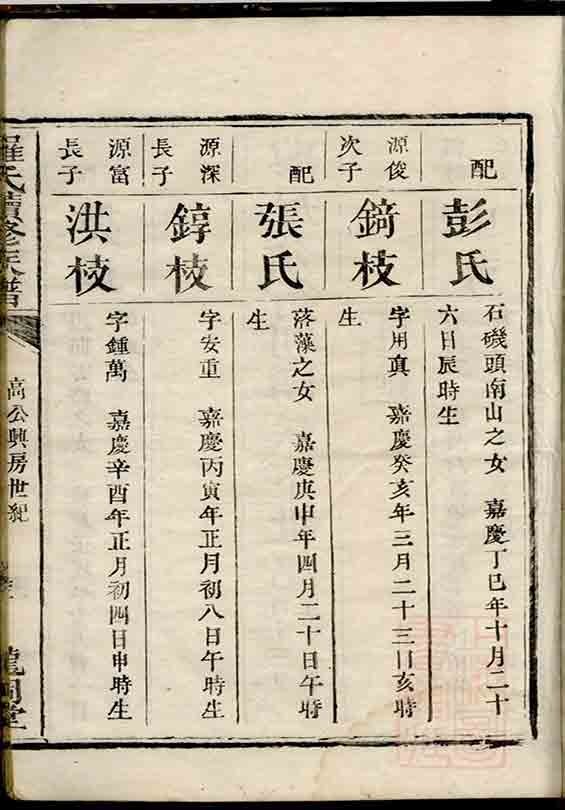 配
彭氏
石磯頭南山之女　嘉慶丁巳年十月二十
六日辰時生
源俊
次子
錡枝
字用真　嘉慶癸亥年三月二十三日亥時
生
配
張氏
落藻之女　嘉慶庚申年四月二十日午時
生
源深
長子
錞枝
字安重　嘉慶丙寅年正月初八日午時生
源富
長子
洪枝
字鍾萬　嘉慶辛酉年正月初四日申時生
羅氏續修族譜
高公興房世紀